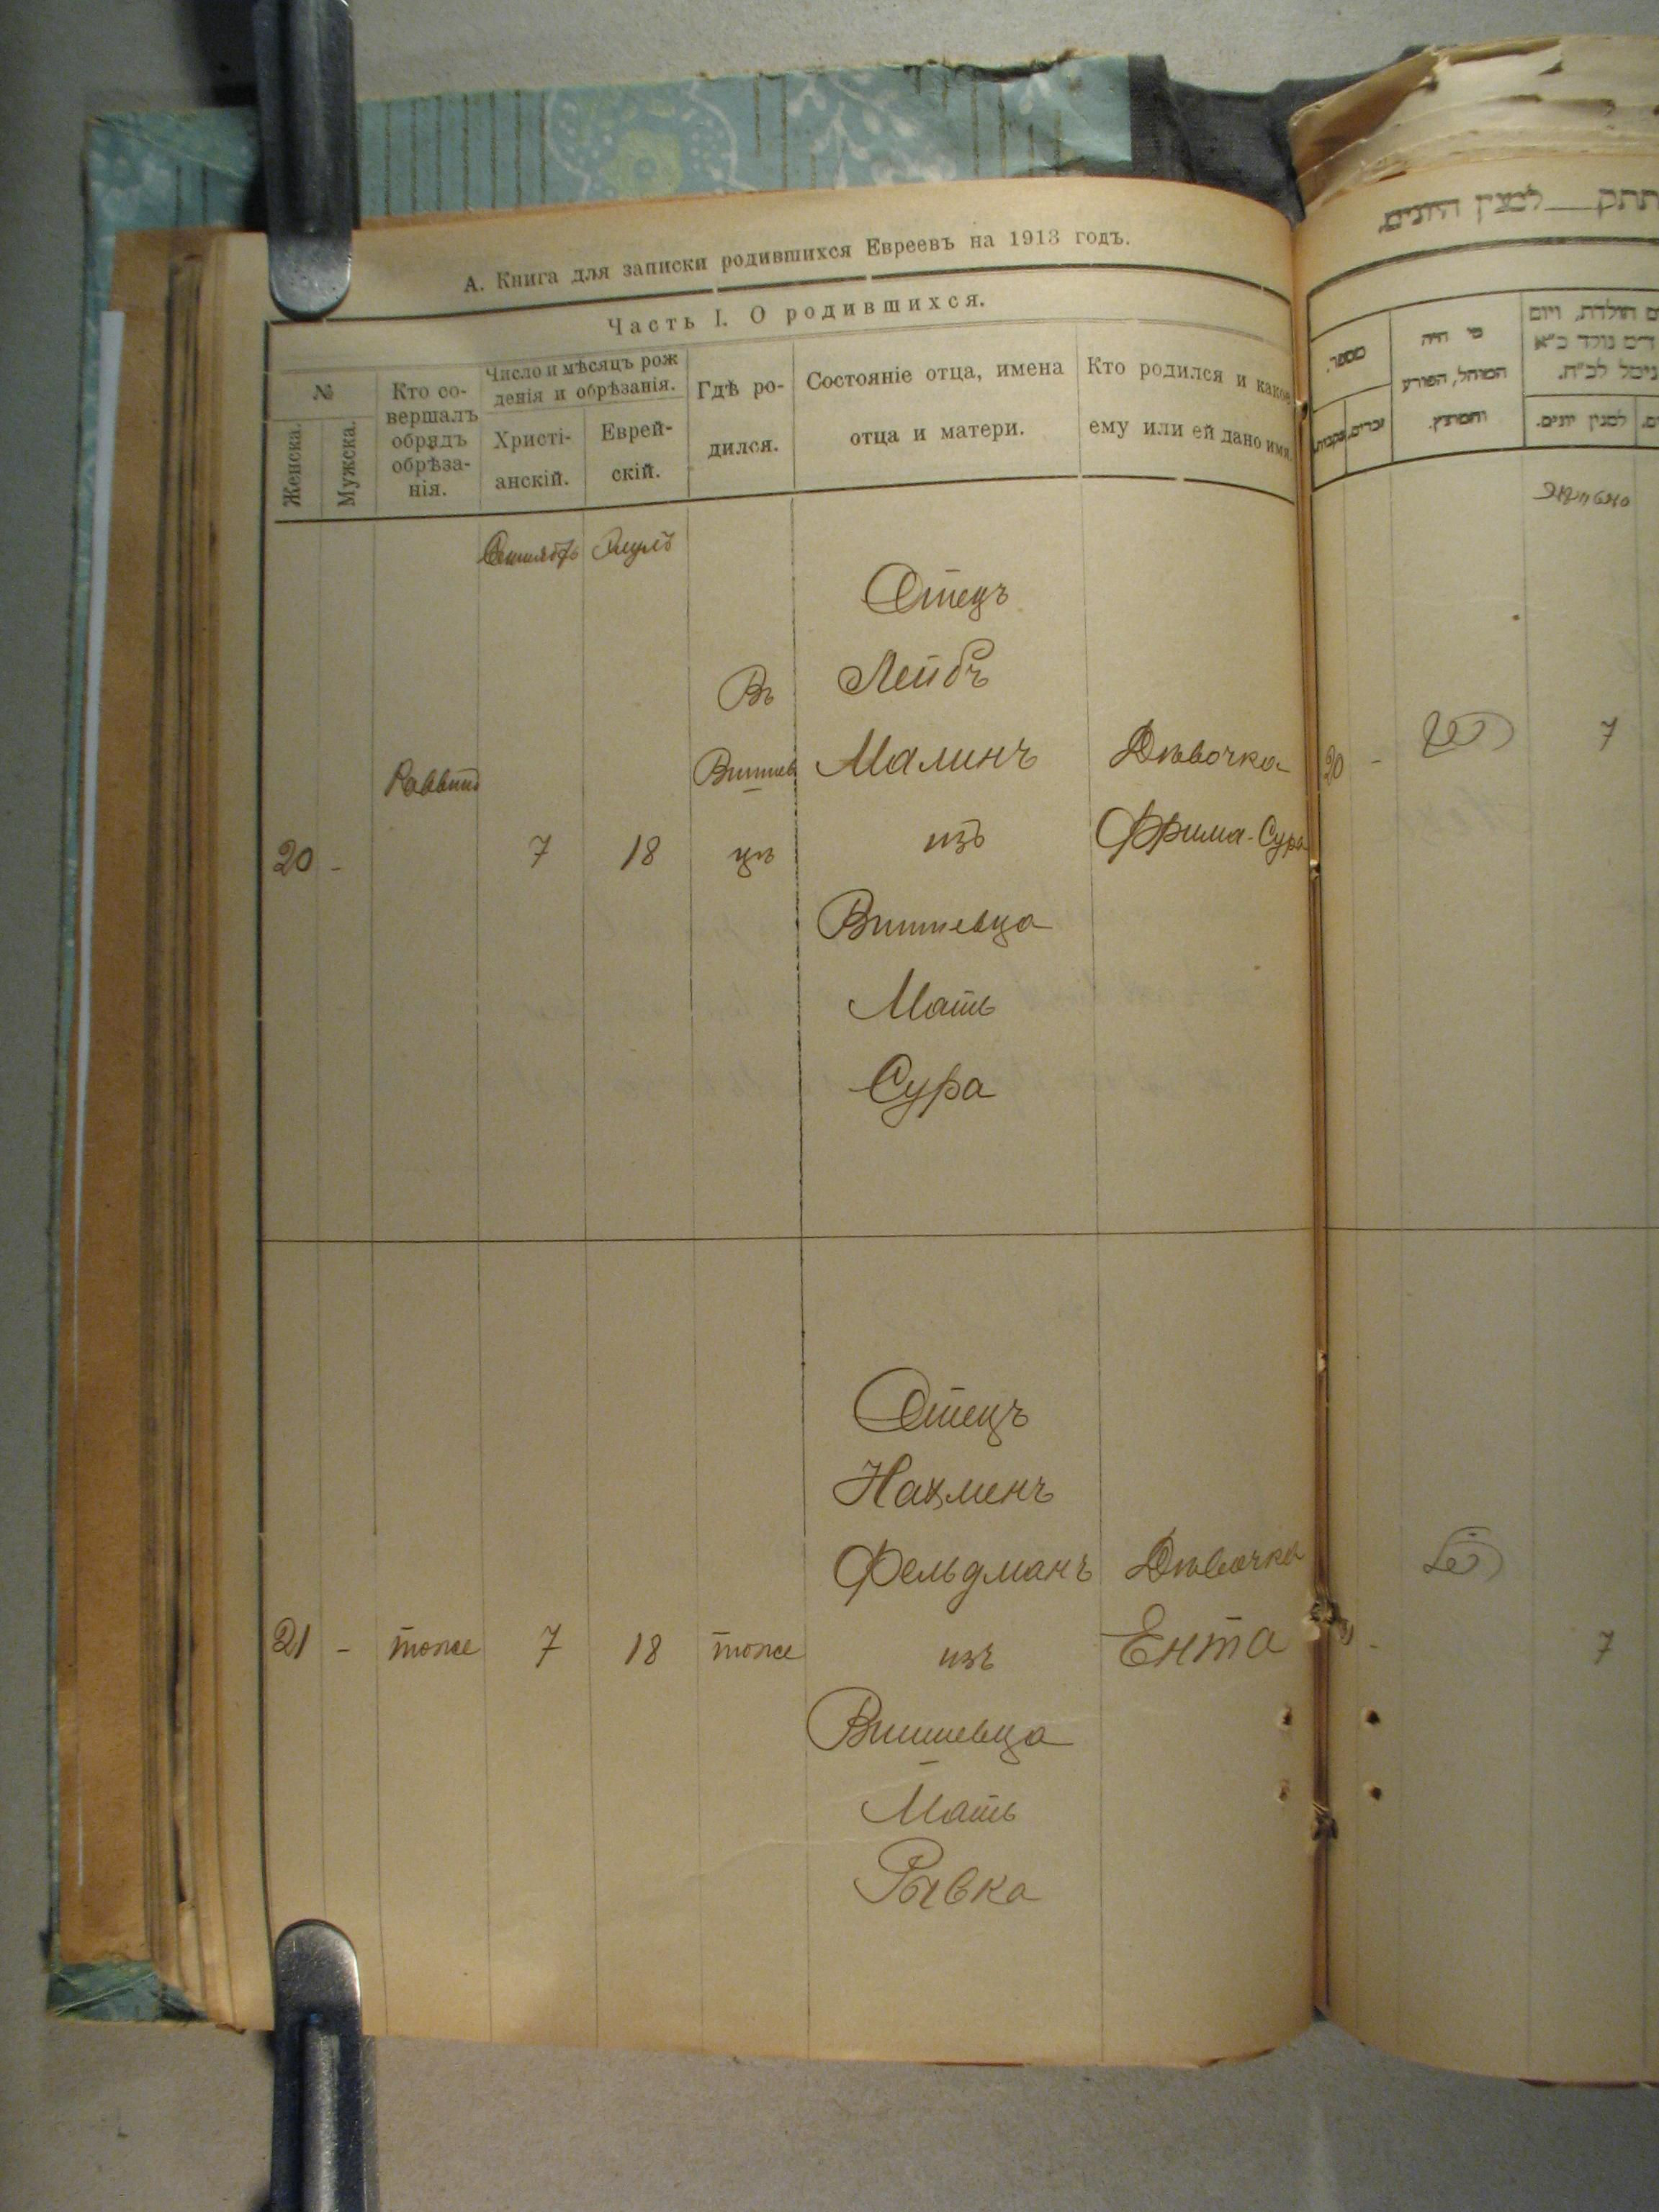 А. Книга для записки родившихся Евреевъ на 1913 годъ.
Часть I. О родившихся.
№
Женска.
Мужска.
Кто со-
вершалъ
обрядъ
обрѣза-
нія.
Число и мѣсяцъ рож
денія и обрѣзанія.
Христі-
анскій.
Еврей-
скій.
Гдѣ ро-
дился.
Состояніе отца, имена
отца и матери.
Кто родился и какое
ему или ей дано имя.
Сентябрь
Элулъ
20 -
Раввинъ
7
18
Въ
Вишнев
цѣ
Отецъ
Лейбъ
Малинъ
изъ
Вишневца
Мать
Сура
Дѣвочка
Фрима-Сура
21 -
тоже
7
18
тоже
Отецъ
Нахменъ
Фельдманъ
изъ
Вишневца
Мать
Рывка
Дѣвочка
Ента
תתק__למנין היונים
מספר.
זכרים.
נקבות.
מי היה
המוהל, הפורע
והמוצץ.
למנין יונים.
20 -
7
7